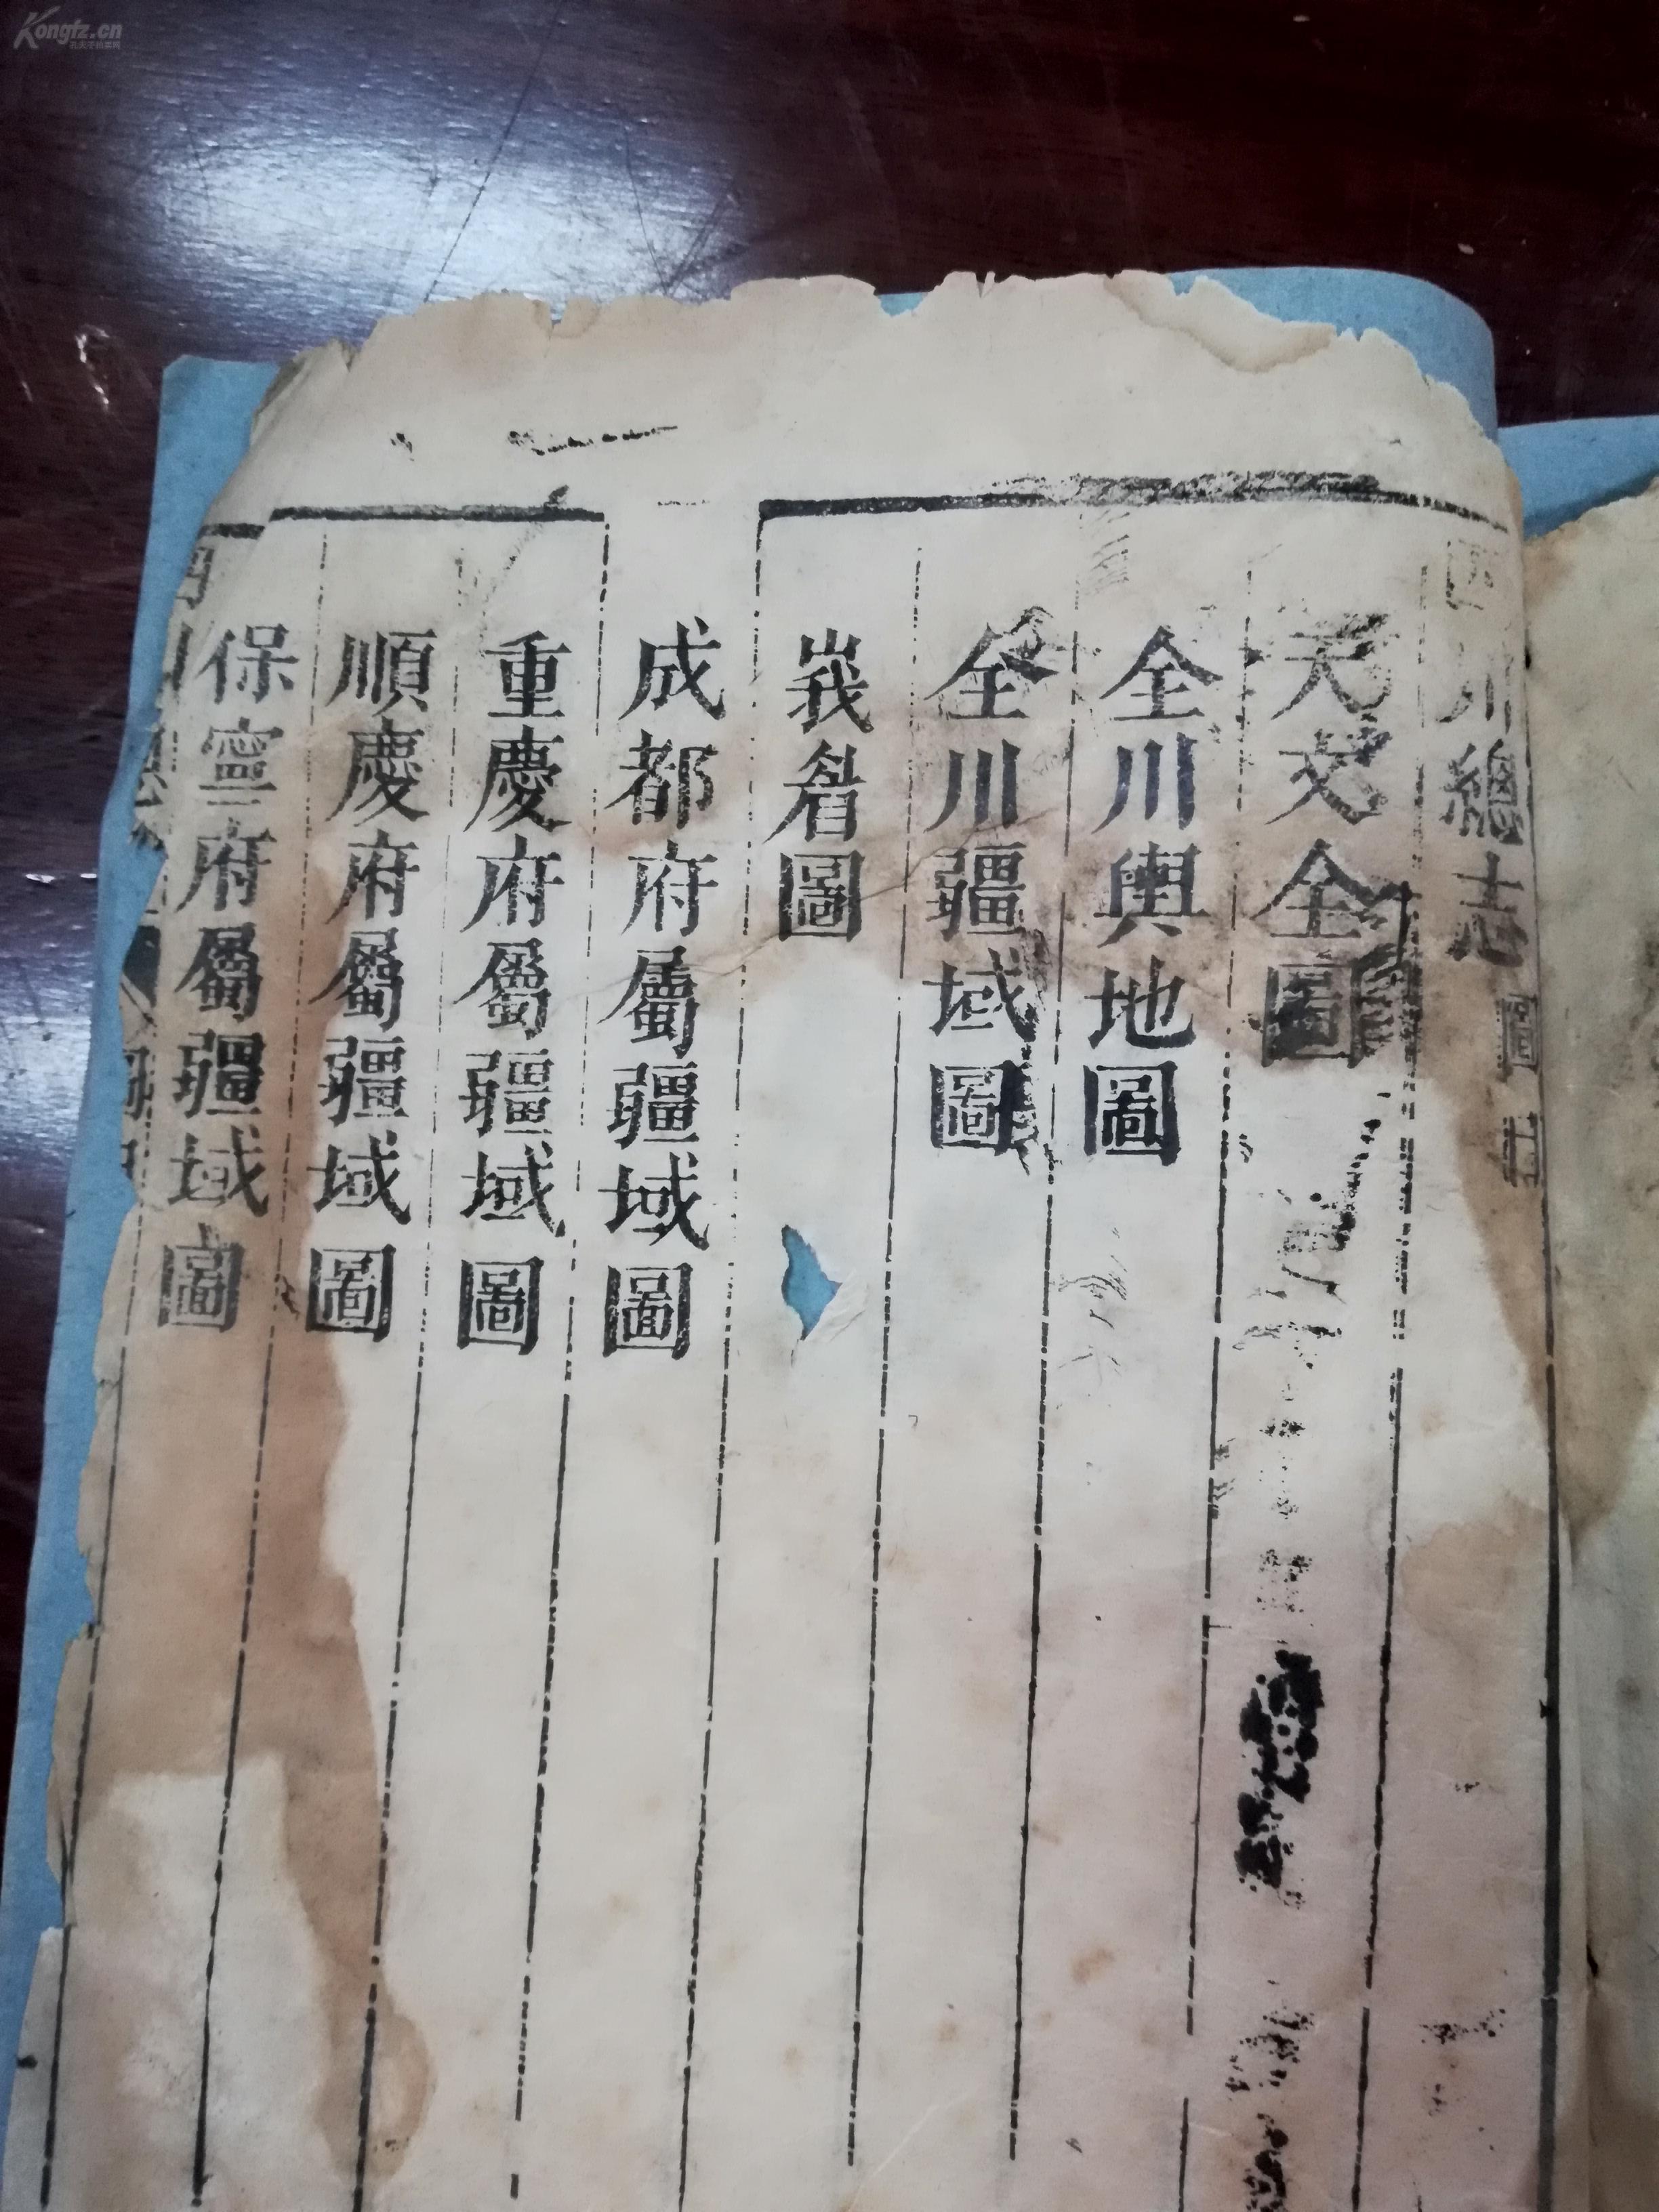 Kongfz.cn
四川總志 圖
天文全圖
全川輿地圖
全川疆域圖
峩眉圖
成都府屬疆域圖
重慶府屬疆域圖
順慶府屬疆域圖
保寧府屬疆域圖